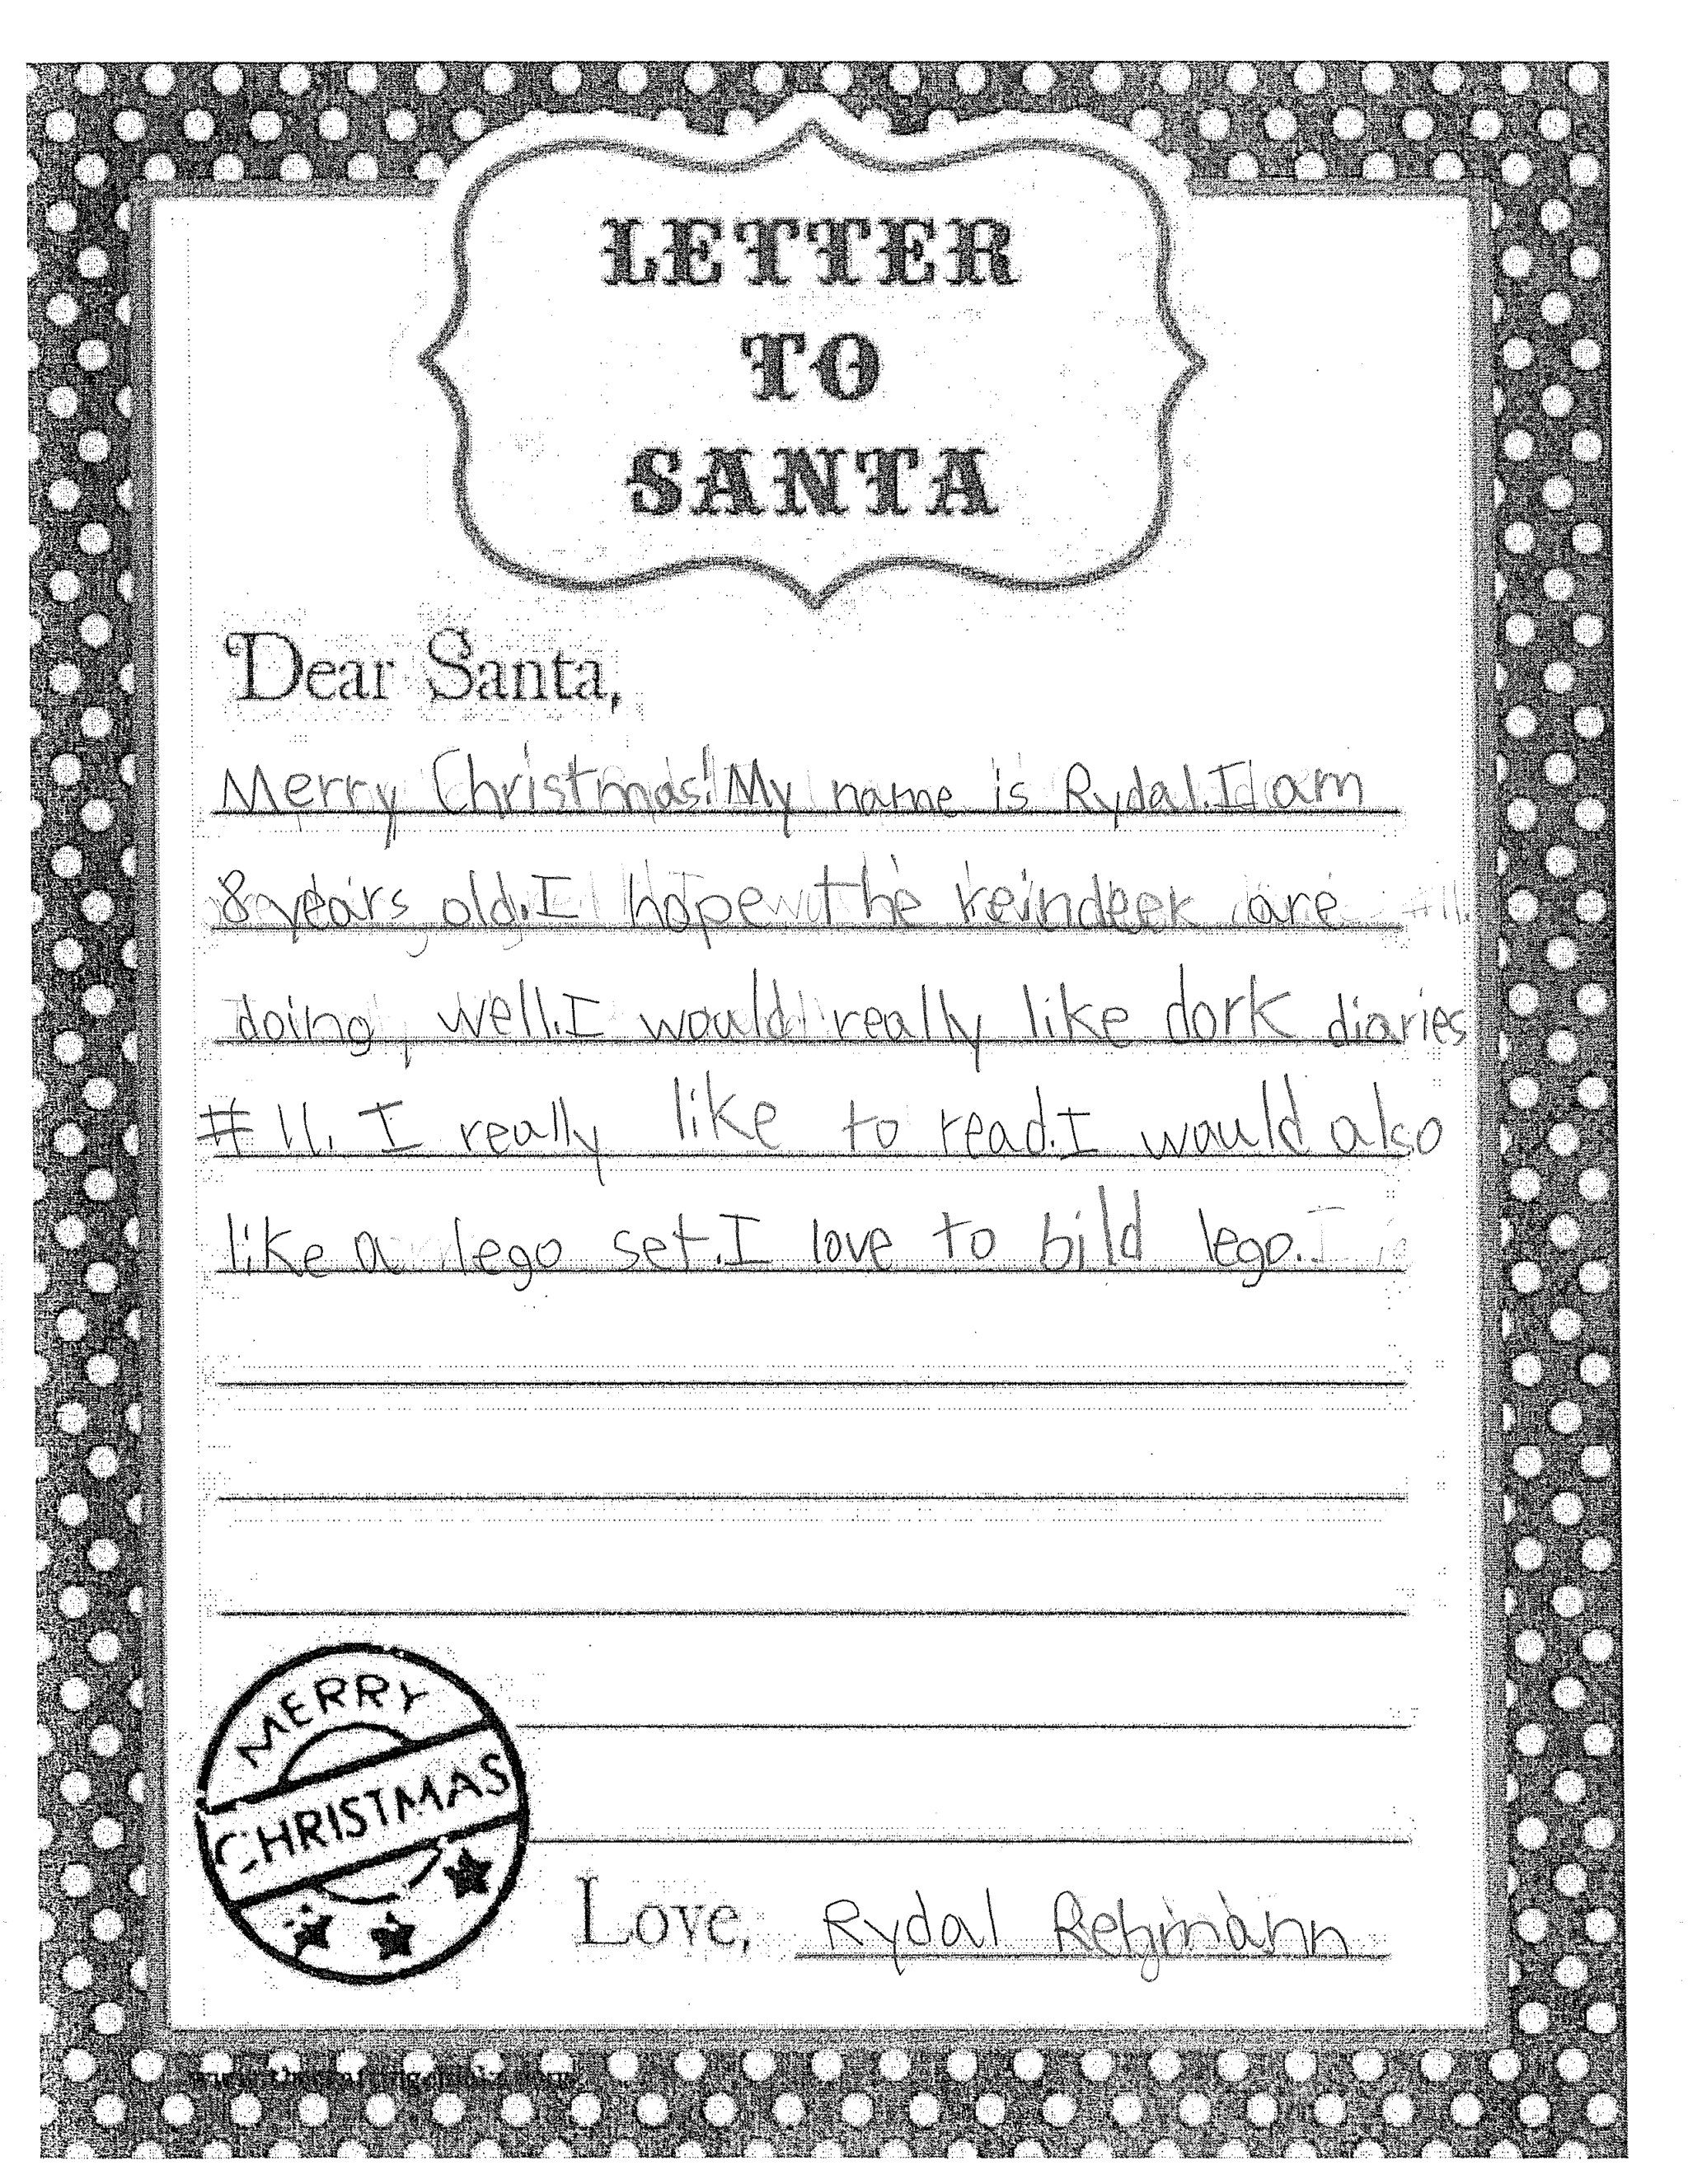 LETTER
TO
SANTA
Dear Santa,
Merry Christmas! My name is Rydal. I am
8 years old. I hope the reindeer are
doing well. I would really like dork diaries
#11. I really like to read. I would also
like a lego set. I love to bild lego.
MERRY
CHRISTMAS
Love, Rydal Rehmann